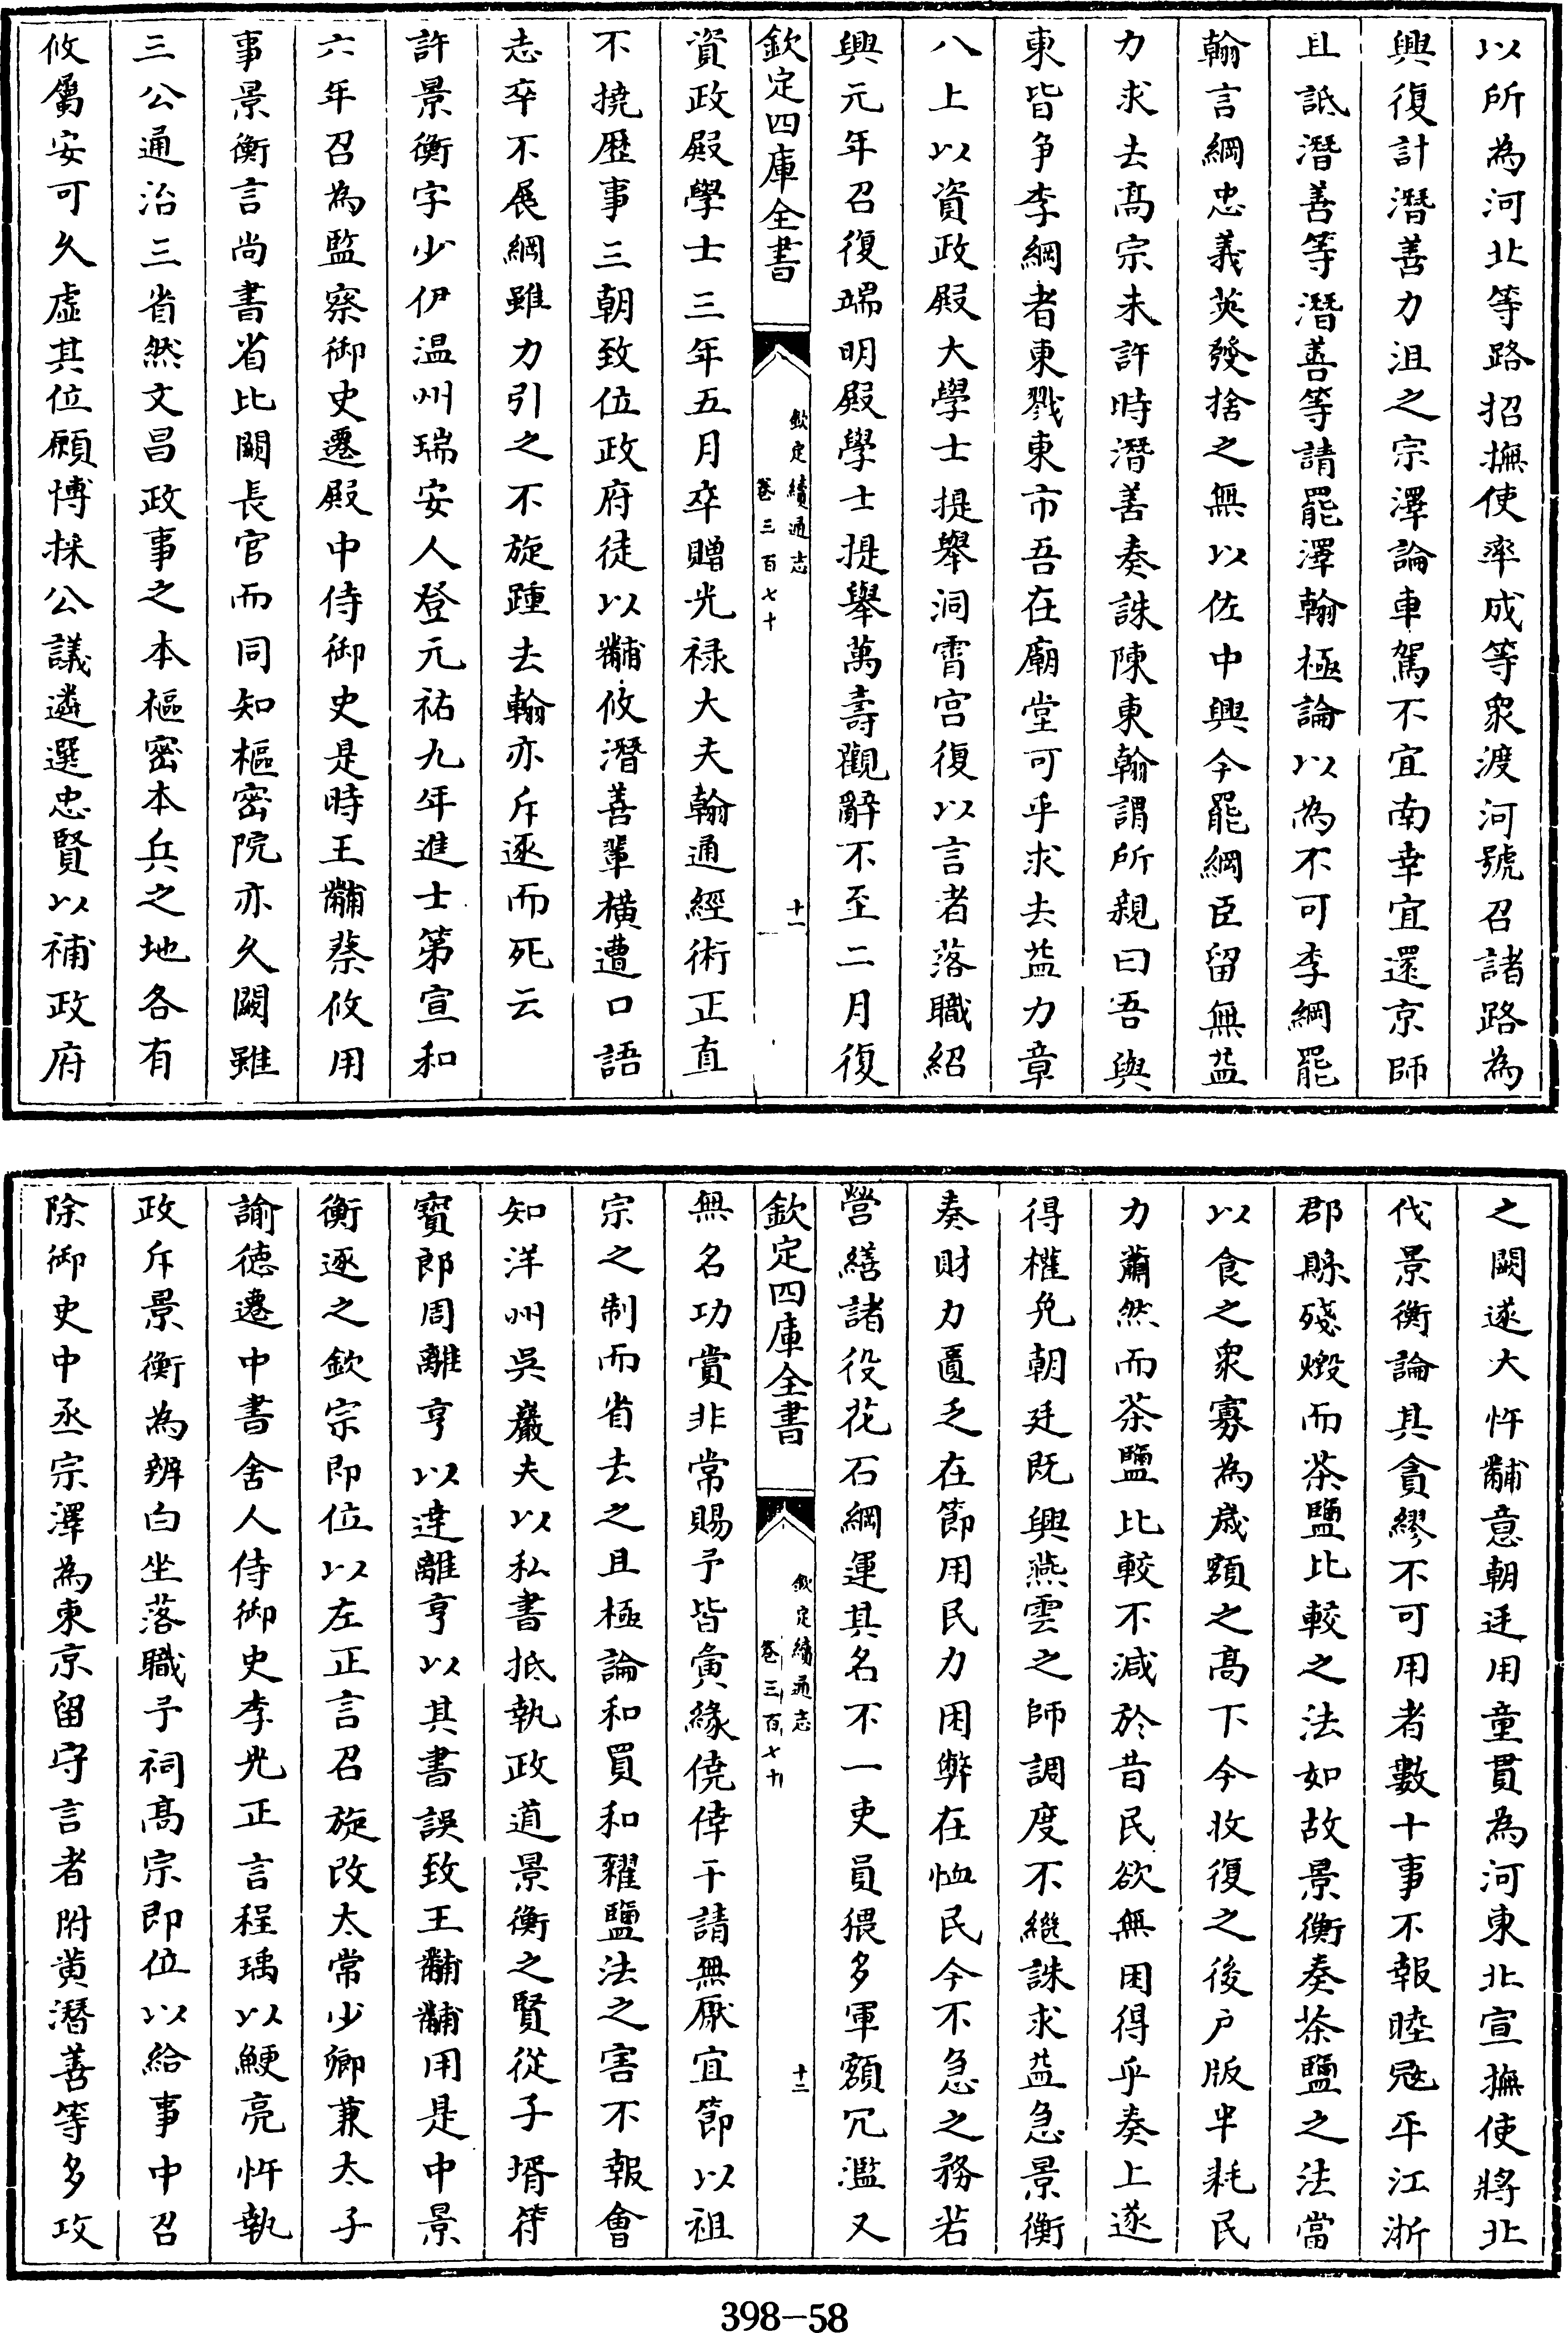 以所為河北等路招撫使率成等衆渡河號召諸路為
興復計潛善力沮之宗澤論車駕不宜南幸宜還京師
且詆潛善等潛善等請罷澤翰極論以為不可李綱罷
翰言綱忠義英發捨之無以佐中興今罷綱臣留無益
力求去髙宗未許時潛善奏誅陳東翰謂所親曰吾與
東皆争李綱者東戮東市吾在廟堂可乎求去益力章
八上以資政殿大學士提舉洞霄宫復以言者落職紹
興元年召復端明殿學士提舉萬壽觀辭不至二月復
欽定四庫全書
欽定續通志
卷三百七十
十一
資政殿學士三年五月卒贈光禄大夫翰通經術正直
不撓歴事三朝致位政府徒以黼攸潛善輩横遭口語
志卒不展綱雖力引之不旋踵去翰亦斥逐而死云
許景衡字少伊温州瑞安人登元祐九年進士第宣和
六年召為監察御史遷殿中侍御史是時王黼蔡攸用
事景衡言尚書省比闕長官而同知樞密院亦久闕雖
三公通治三省然文昌政事之本樞密本兵之地各有
攸屬安可久虛其位願博採公議遴選忠賢以補政府
之闕遂大忤黼意朝廷用童貫為河東北宣撫使將北
伐景衡論其貪繆不可用者數十事不報睦冦平江浙
郡縣殘燬而茶鹽比較之法如故景衡奏茶鹽之法當
以食之衆寡為歳額之髙下今收復之後户版半耗民
力蕭然而茶鹽比較不減於昔民欲無困得乎奏上遂
得權免朝廷既興燕雲之師調度不繼誅求益急景衡
奏財力匱乏在節用民力困弊在恤民今不急之務若
營繕諸役花石綱運其名不一吏員猥多軍額冗濫又
欽定四庫全書
欽定續通志
卷三百七十
十二
無名功賞非常賜予皆夤緣僥倖干請無厭宜節以祖
宗之制而省去之且極論和買和糴鹽法之害不報會
知洋州吳巖夫以私書抵執政道景衡之賢從子壻符
寳郎周離亨以達離亨以其書誤致王黼黼用是中景
衡逐之欽宗即位以左正言召旋改太常少卿兼太子
諭徳遷中書舍人侍御史李光正言程瑀以鯁亮忤執
政斥景衡為辨白坐落職予祠髙宗即位以給事中召
除御史中丞宗澤為東京留守言者附黄潛善等多攻
398-58